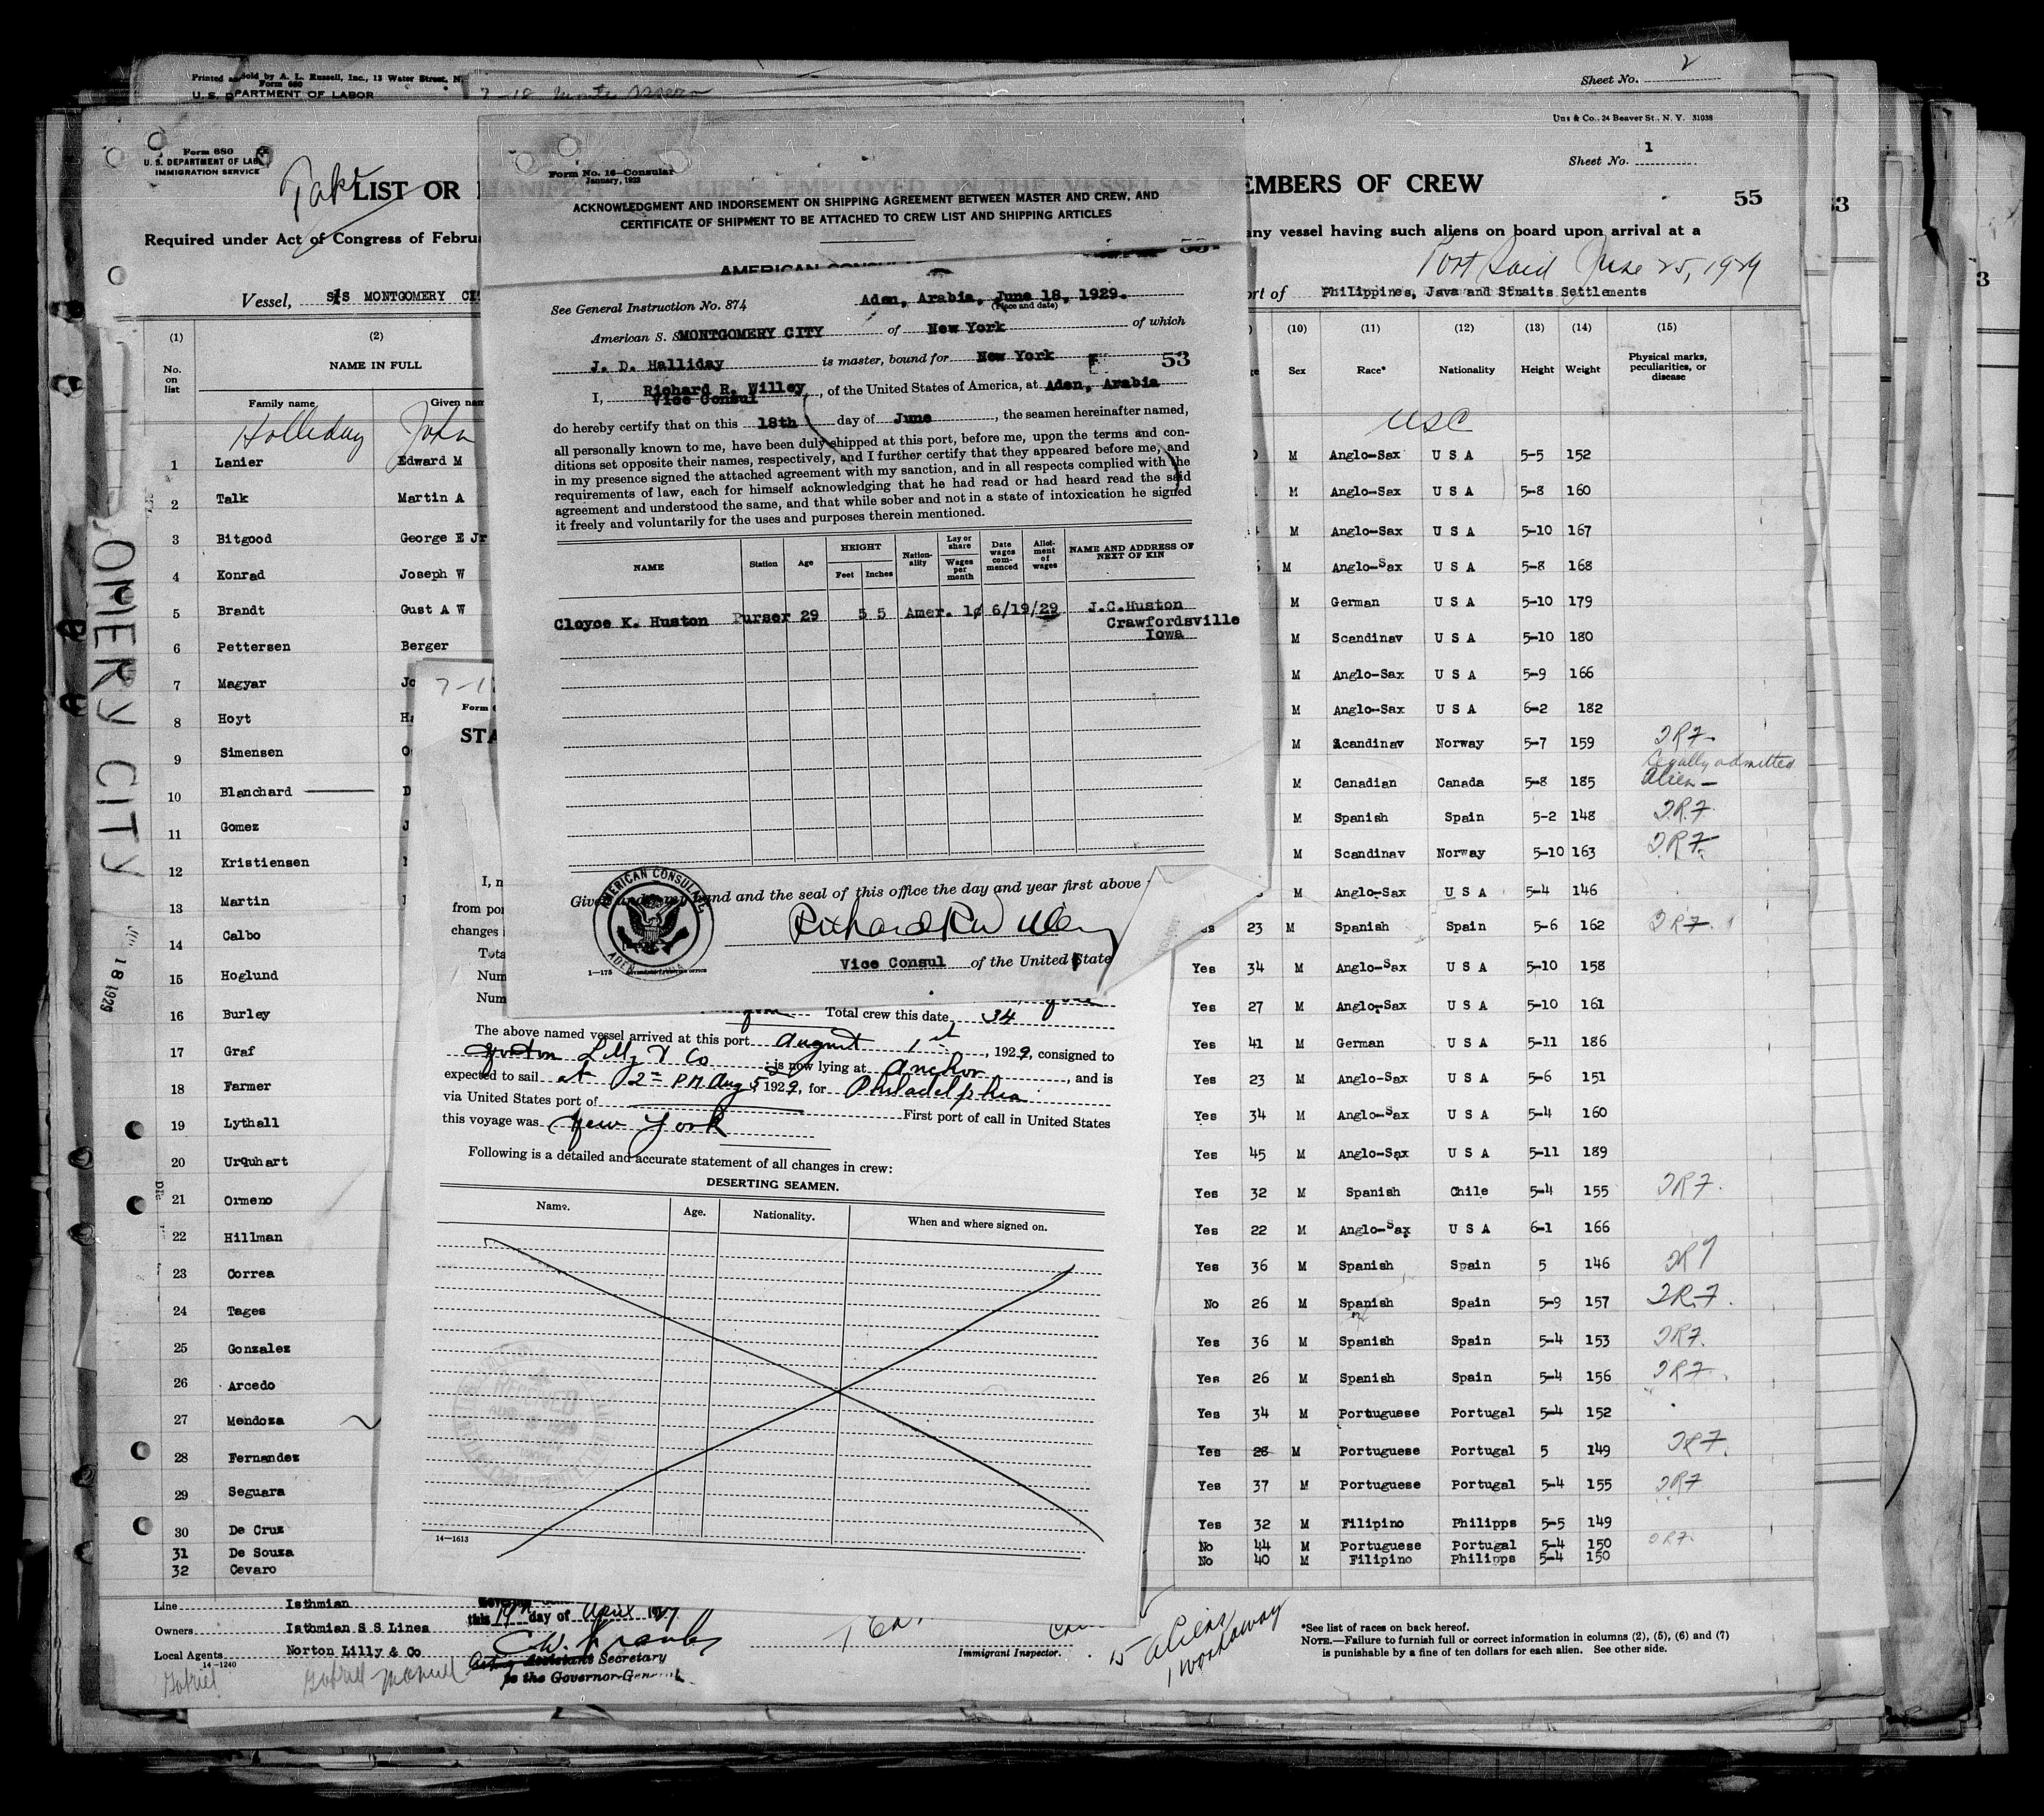 Printed and Sold by A. L. Russell, Inc., 13 Water Street, N.
Form 680
U. S. DEPARTMENT OF LABOR
7-18
Sheet No. 2
Uns & Co., 24 Beaver St., N. Y. 31038
Form 680
U. S. DEPARTMENT OF LAB
IMMIGRATION SERVICE
Sheet No. 1
LIST OR
EMBERS OF CREW
55
53
3
Required under Act of Congress of Febru
any vessel having such aliens on board upon arrival at a
Port Said June 25, 1929
Vessel, S/S MONTGOMERY CIT
ort of Philippines, Java and Straits Settlements
(1) (2)
No. on list
NAME IN FULL
Family name Given nam
(10) (11) (12) (13) (14) (15)
Sex Race* Nationality Height Weight Physical marks, peculiarities, or disease
Holliday John USC
1 Lanier Edward M
M Anglo-Sax U S A 5-5 152
2 Talk Martin A
M Anglo-Sax U S A 5-8 160
3 Bitgood George E Jr
M Anglo-Sax U S A 5-10 167
4 Konrad Joseph W
M Anglo-Sax U S A 5-8 168
5 Brandt Gust A W
M German U S A 5-10 179
6 Pettersen Berger
M Scandinav U S A 5-10 180
7 Magyar Jo
M Anglo-Sax U S A 5-9 166
8 Hoyt Ha
M Anglo-Sax U S A 6-2 182
9 Simensen O
M Scandinav Norway 5-7 159
Legally admitted
10 Blanchard D
M Canadian Canada 5-8 185 Alien
11 Gomez J
M Spanish Spain 5-2 148
12 Kristiensen
M Scandinav Norway 5-10 163
13 Martin
M Anglo-Sax U S A 5-4 146
14 Calbo
23 M Spanish Spain 5-6 162
15 Hoglund
Yes 34 M Anglo-Sax U S A 5-10 158
16 Burley
Yes 27 M Anglo-Sax U S A 5-10 161
17 Graf
Yes 41 M German U S A 5-11 186
18 Farmer
Yes 23 M Anglo-Sax U S A 5-6 151
19 Lythall
Yes 34 M Anglo-Sax U S A 5-4 160
20 Urquhart
Yes 45 M Anglo-Sax U S A 5-11 189
21 Ormeno
Yes 32 M Spanish Chile 5-4 155
22 Hillman
Yes 22 M Anglo-Sax U S A 6-1 166
23 Correa
Yes 36 M Spanish Spain 5 146
24 Tages
No 26 M Spanish Spain 5-9 157
25 Gonzalez
Yes 36 M Spanish Spain 5-4 153
26 Arcedo
Yes 26 M Spanish Spain 5-4 156
27 Mendoza
Yes 34 M Portuguese Portugal 5-4 152
28 Fernandez
Yes 28 M Portuguese Portugal 5 149
29 Seguara
Yes 37 M Portuguese Portugal 5-4 155
30 De Cruz
Yes 32 M Filipino Philipps 5-5 149
31 De Souza
No 44 M Portuguese Portugal 5-4 150
32 Cevaro
No 40 M Filipino Philipps 5-4 150
OMERY CITY
18 1929
Line Isthmian
Owners Isthmian S S Lines
Local Agents Norton Lilly & Co
14-1240
this 19th day of April 1929
Acting Assistant Secretary
to the Governor-General.
Immigrant Inspector.
15 aliens
1 workaway
*See list of races on back hereof.
NOTE.—Failure to furnish full or correct information in columns (2), (5), (6) and (7)
is punishable by a fine of ten dollars for each alien. See other side.
Form No. 16—Consular
January, 1923
ACKNOWLEDGMENT AND INDORSEMENT ON SHIPPING AGREEMENT BETWEEN MASTER AND CREW, AND
CERTIFICATE OF SHIPMENT TO BE ATTACHED TO CREW LIST AND SHIPPING ARTICLES
AMERICAN CONSUL
See General Instruction No. 874
Aden, Arabia, June 18, 1929.
(Place and date)
American S. S. MONTGOMERY CITY of New York of which
J. D. Halliday is master, bound for New York
53
I, Richard R. Willey, Vice Consul, of the United States of America, at Aden, Arabia
do hereby certify that on this 18th day of June, the seamen hereinafter named,
all personally known to me, have been duly shipped at this port, before me, upon the terms and con-
ditions set opposite their names, respectively, and I further certify that they appeared before me, and
in my presence signed the attached agreement with my sanction, and in all respects complied with the
requirements of law, each for himself acknowledging that he had read or had heard read the said
agreement and understood the same, and that while sober and not in a state of intoxication he signed
it freely and voluntarily for the uses and purposes therein mentioned.
NAME Station Age HEIGHT Feet Inches Nation-ality Lay or share Wages per month Date wages com-menced Allot-ment of wages NAME AND ADDRESS OF NEXT OF KIN
Cloyce K. Huston Purser 29 5 5 Amer. 1¢ 6/19/29 J.C.Huston
Crawfordsville
Iowa
Given under my hand and the seal of this office the day and year first above
AMERICAN CONSULATE
ADEN
Richard R. Willey
Vice Consul of the United State
1—175
7-1
Form
STA
I, n
from por
changes
Tota
Num
Num
Total crew this date 34
The above named vessel arrived at this port August 1st, 1929, consigned to
Norton Lilly & Co is now lying at Anchor, and is
expected to sail at 2 PM Aug 5 1929, for Philadelphia
via United States port of First port of call in United States
this voyage was New York
Following is a detailed and accurate statement of all changes in crew:
DESERTING SEAMEN.
Name. Age. Nationality. When and where signed on.
RECEIVED
14—1613